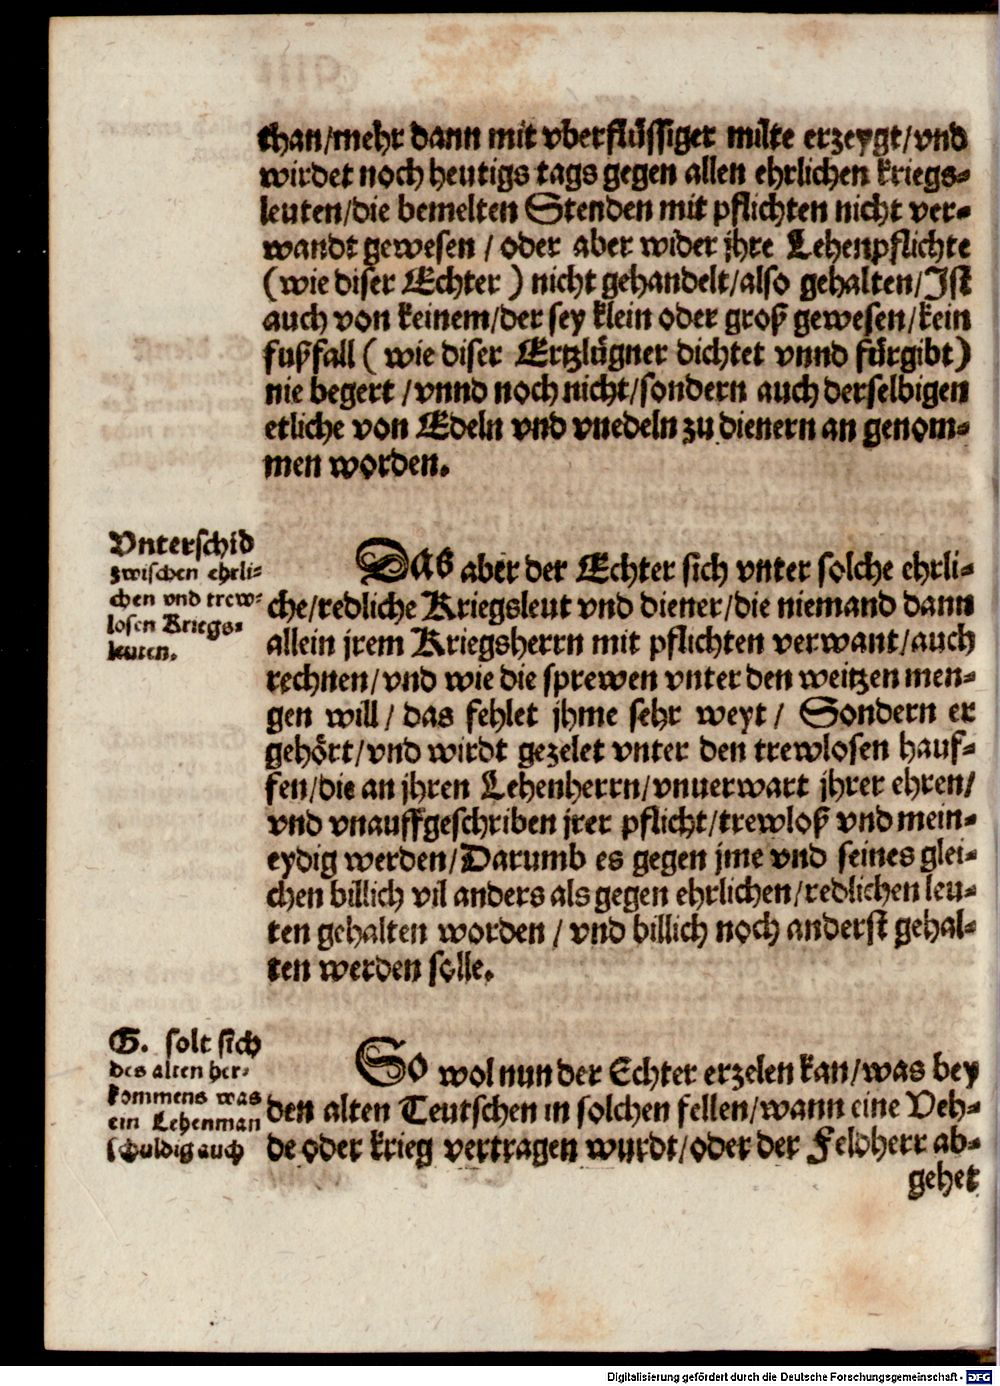 than/mehr dann mit vberflüssiger milte erzeygt/vnd
wirdet noch heutigs tags gegen allen ehrlichen kriegs-
leuten/die bemelten Stenden mit pflichten nicht ver-
wandt gewesen / oder aber wider jhre Lehenpflichte
(wie diser Echter ) nicht gehandelt/also gehalten/Jst
auch von keinem/der sey klein oder groß gewesen/kein
fußfall ( wie diser Ertzlügner dichtet vnnd fürgibt)
nie begert / vnnd noch nicht/sondern auch derselbigen
etliche von Edeln vnd vnedeln zu dienern an genom-
men worden.
Vnterschid
zwischen ehrli-
chen vnd trew-
losen Kriegs-
leuten.
Das aber der Echter sich vnter solche ehrli-
che/redliche Kriegsleut vnd diener/die niemand dann
allein jrem Kriegsherrn mit pflichten verwant/auch
rechnen/vnd wie die sprewen vnter den weitzen men-
gen will / das fehlet jhme sehr weyt / Sondern er
gehört/vnd wirdt gezelet vnter den trewlosen hauf-
fen/die an jhren Lehenherrn/vnuerwart jhrer ehren/
vnd vnauffgeschriben jrer pflicht/trewloß vnd mein-
eydig werden/Darumb es gegen jme vnd seines glei-
chen billich vil anders als gegen ehrlichen/redlichen leu-
ten gehalten worden / vnd billich noch anderst gehal-
ten werden solle.
G. solt sich
des alten her-
kommens was
ein Lehenman
schuldig auch
So wol nun der Echter erzelen kan/was bey
den alten Teutschen in solchen fellen/wann eine Veh-
de oder krieg vertragen wurdt/oder der Feldherr ab-
gehet
Digitalisierung gefördert durch die Deutsche Forschungsgemeinschaft - DFG